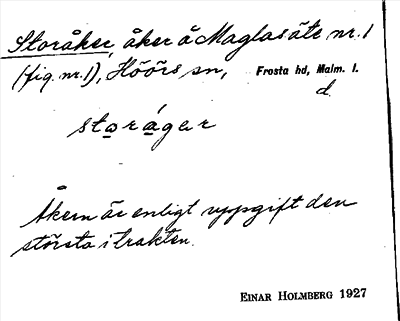 Storåker, åker å Maglasäte nr. 1
(fig. nr. 1), Höörs sn, Frosta hd, Malm. l.
d.
storágar
Åkern är enligt uppgift den
största i trakten.
EINAR HOLMBERG 1927